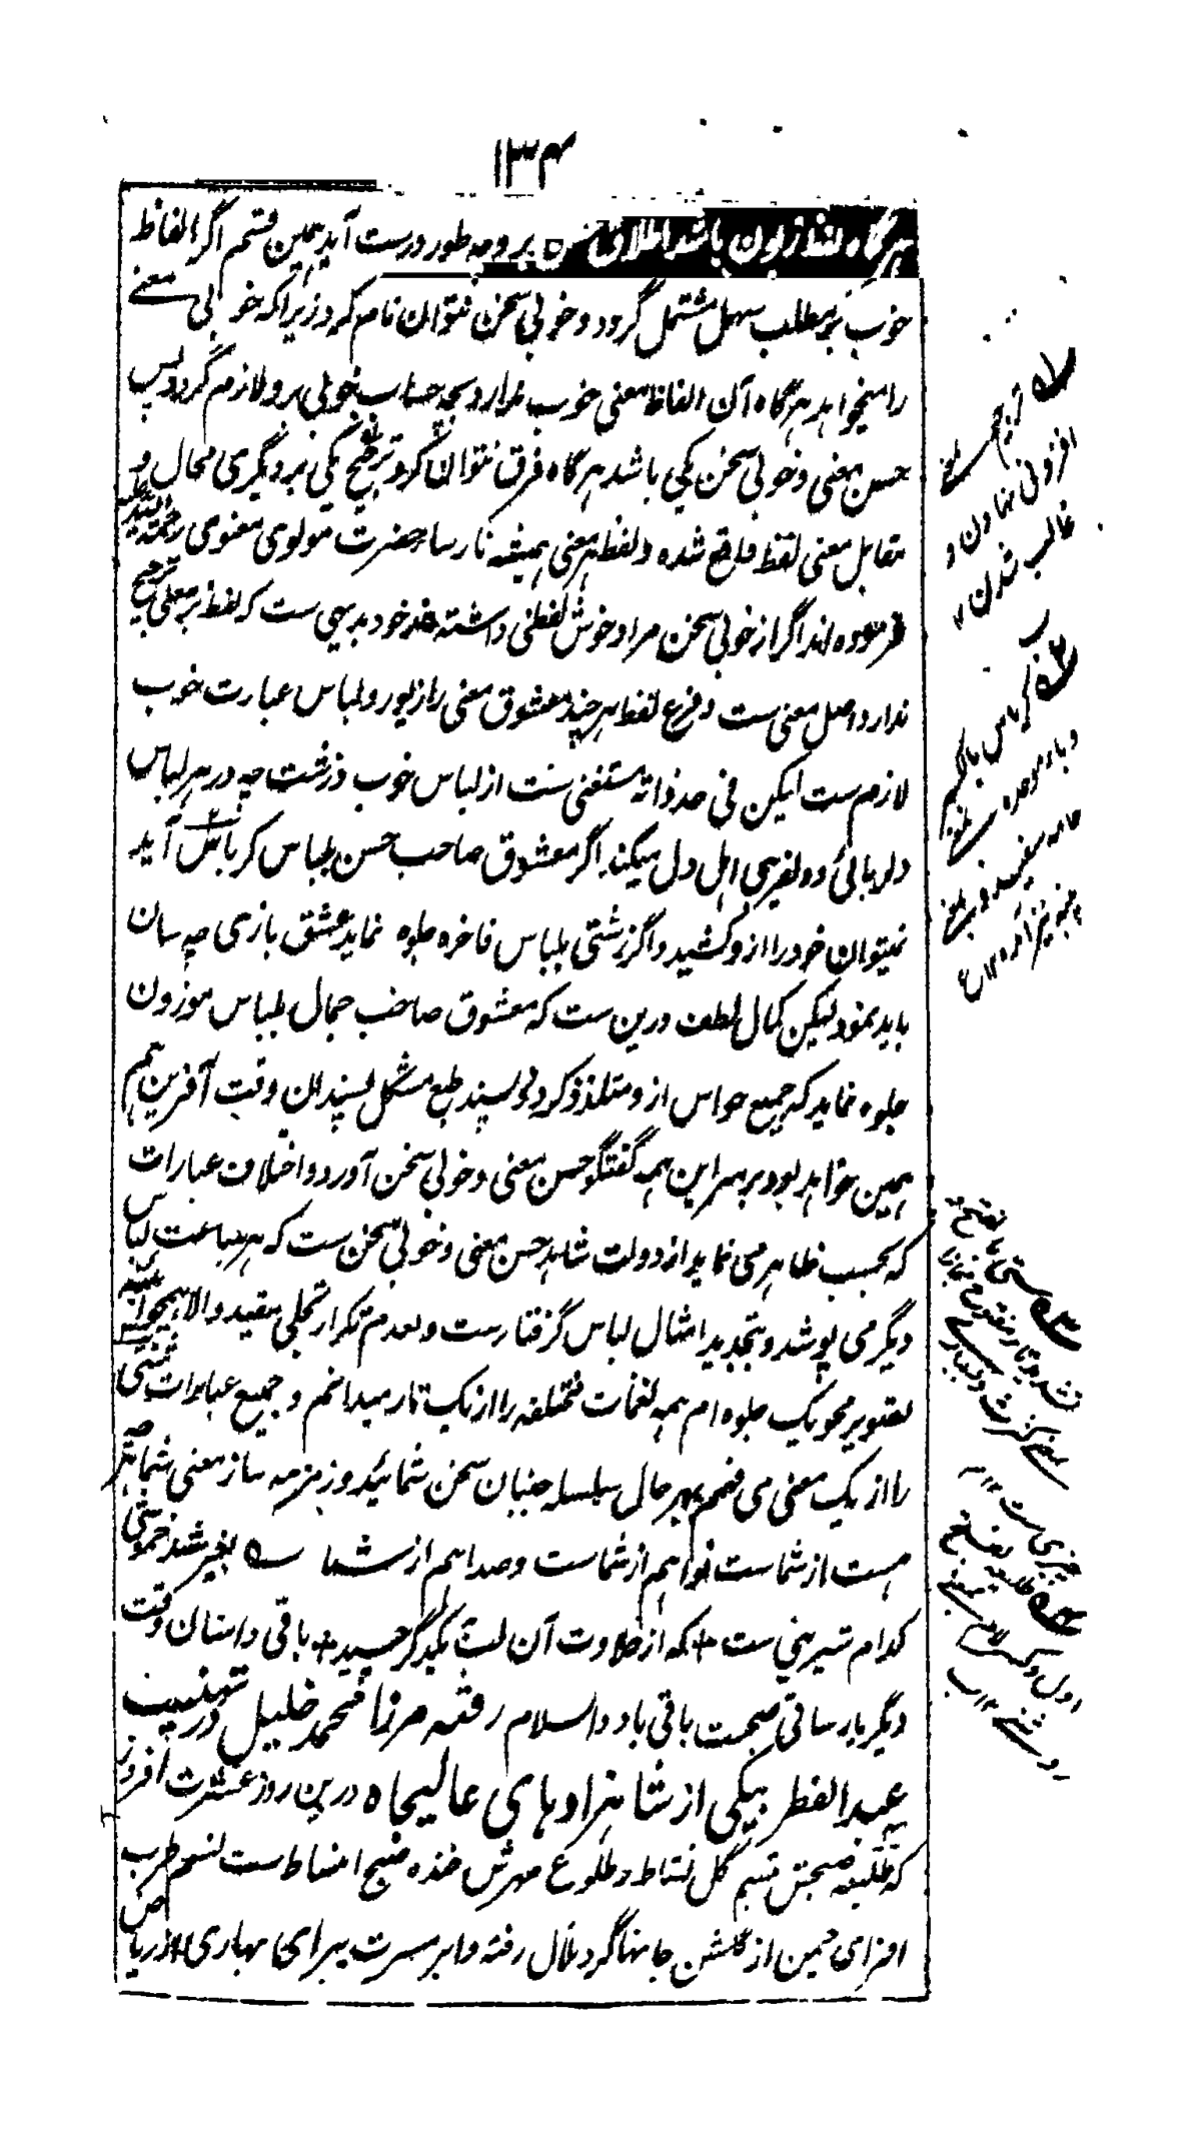 ۱۳۴
هرگاه لفظ زبون باشد اطلاق حسن برو چه طور درست آید همین قسم اگر الفاظ
خوب بر مطلب سهل مشتمل گردد خوبی سخن نتوان نام کرد زیرا که خوبی معنے
را میخواهد هرگاه آن الفاظ معنی خوب ندارد بچه حساب خوبی برو لازم گردد پس
حسن معنی و خوبی سخن یکی باشد هرگاه فرق نتوان کرد ترجیح یکی بر دیگری محال و
مقابل معنی لفظ واقع شده و لفظ بر معنی همیشه نارسا حضرت مولوی معنوی رحمة الله علیه
فرموده اند اگر از خوبی سخن مراد خوش لفظی داشته اند خود بدیهی ست که لفظ بر معنی ترجیح
ندارد اصل معنی ست و فرع لفظ هر چند معشوق معنی را زیور و لباس عبارت خوب
لازم ست لیکن فی حد ذاته مستغنی ست از لباس خوب و زشت چه در هر لباس
دلربائی و دلفریبی اهل دل میکند اگر معشوق صاحب حسن بلباس کرباس آید
نمیتوان خود را ازو کشید و اگر زشتی بلباس فاخره جلوه نماید عشق بازی چه سان
باید نمود لیکن کمال لطف درین ست که معشوق صاحب جمال بلباس موزون
جلوه نماید که جمیع حواس ازو متلذذ گردد پسند طبع مشکل پسندان وقت آفرین هم
همین خواهد بود بر سر این همه گفتگو حسن معنی و خوبی سخن آورد و اختلاف عبارات
که بحسب ظاهر می نماید از دولت شاهد حسن معنی و خوبی سخن ست که هر ساعت لباس
دیگر می پوشد و بتجدید امثال لباس گرفتار ست و بعدم تکرار تجلی مقید والا همچو آئینه
تصویر محو یک جلوه ام همه نغمات مختلفه را از یک تار میدانم و جمیع عبارات شتی
را از یک معنی می فهم بهر حال سلسله جنبان سخن شمائید و زمزمه ساز معنی شما هر چه
هست از شماست نوا هم از شماست و صدا هم از شما ؎ بغیر شهد خموشی
کدام شیرینی ست + که از حلاوت آن لب بیکدگر چسپید + باقی داستان وقت
دیگر بار ساقی صحبت باقی باد والسلام رقعه مرزا محمد خلیل در تهنیت
عید الفطر بیکی از شاهزادهای عالیجاه درین روز عشرت افروز
که طلیعه صبحش تبسم گل نشاط و طلوع مهرش خنده صبح انبساط ست نسیم طرب
افزای چمن از گلشن جانها گرد ملال رفته و ابر مسرت پیرای بهاری از ریاض
ترجیح
افزونی نهادن و
غالب شدن
کرباس بالکسر
و باء موحده
جامه سفید
شتی بفتح
و تشدید تاء